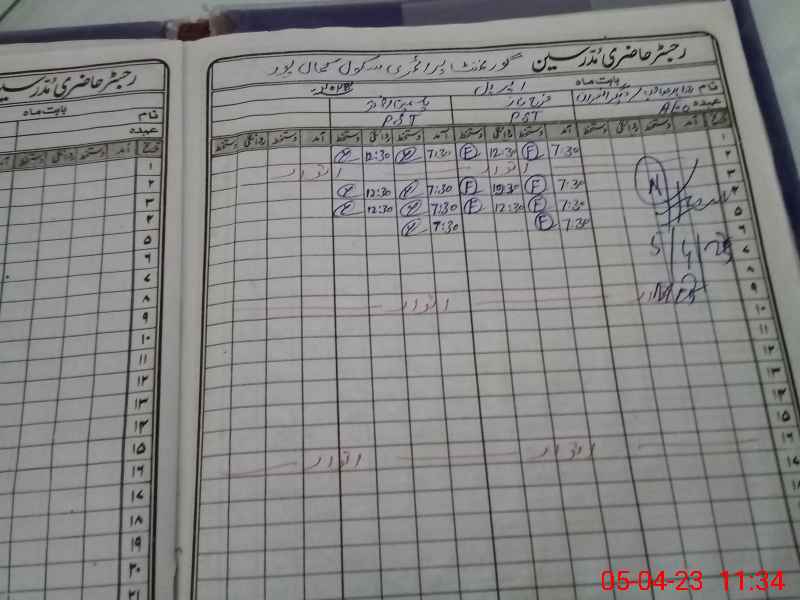 رجسٹر حاضری مدرسین
بابت ماہ
نام
عہدہ
تاریخ آمد دستخط روانگی دستخط آمد
۱
۲
۳
۴
۵
۶
۷
۸
۹
۱۰
۱۱
۱۲
۱۳
۱۴
۱۵
۱۶
۱۷
۱۸
۱۹
۲۰
۲۱
رجسٹر حاضری مدرسین گورنمنٹ پرائمری سکول
بابت ماہ اپریل
نام
عہدہ A/O P.S.T P.S.T
تاریخ آمد دستخط روانگی دستخط آمد دستخط روانگی دستخط آمد دستخط روانگی دستخط آمد دستخط روانگی دستخط
۱ 7:30 F 12:30 F 7:30 12:30
۲ اتوار اتوار
۳ 7:30 F 12:30 F 7:30 12:30
۴ 7:30 F 12:30 F 7:30 12:30
۵ 7:30 F 7:30
5/4/23
۶
۷
۸
۹ اتوار
۱۰
۱۱
۱۲
۱۳
۱۴
۱۵
۱۶ اتوار اتوار
۱۷
۱۸
۱۹
۲۰
05-04-23 11:34